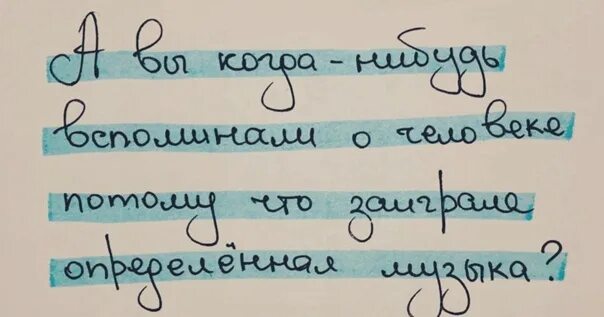 А вы когда-нибудь
вспоминали о человеке
потому что заиграла
определённая музыка?